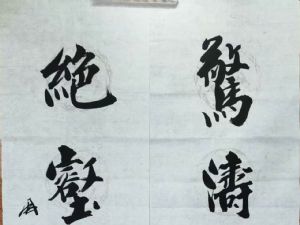 驚濤
絕壑